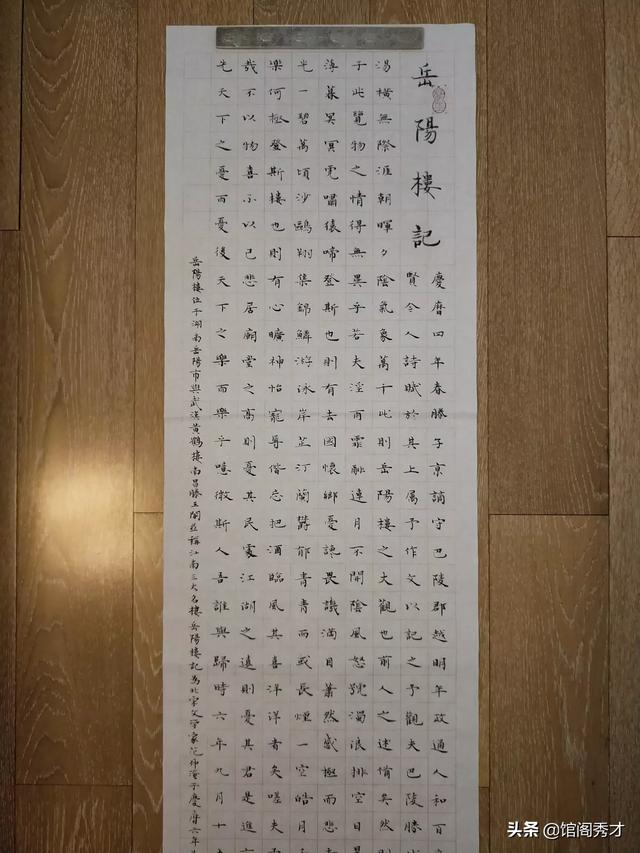 岳陽樓記
慶曆四年春滕子京謫守巴陵郡越明年政通人和百
賢今人詩賦於其上属予作文以記之予觀夫巴陵勝
湯橫無際涯朝暉夕陰氣象萬千此則岳陽樓之大觀也前人之述備矣然則
于此覽物之情得無異乎若夫淫雨霏霏連月不開陰風怒號濁浪排空日
薄暮冥冥虎嘯猿啼登斯也則有去國懷鄉憂讒畏譏滿目蕭然感極而悲
光一碧萬頃沙鷗翔集錦鱗游泳岸芷汀蘭鬱郁青青而或長煙一空皓月
樂何極登斯樓也則有心曠神怡寵辱偕忘把酒臨風其喜洋洋者矣嗟夫
哉不以物喜不以己悲居廟堂之高則憂其民處江湖之遠則憂其君是進
先天下之憂而憂後天下之樂而樂乎噫微斯人吾誰與歸時六年九月十
岳陽樓位于湖南岳陽市與武漢黃鶴樓南昌滕王閣並稱江南三大名樓岳陽樓記為北宋文學家范仲淹于慶曆六年
头条 @馆阁秀才